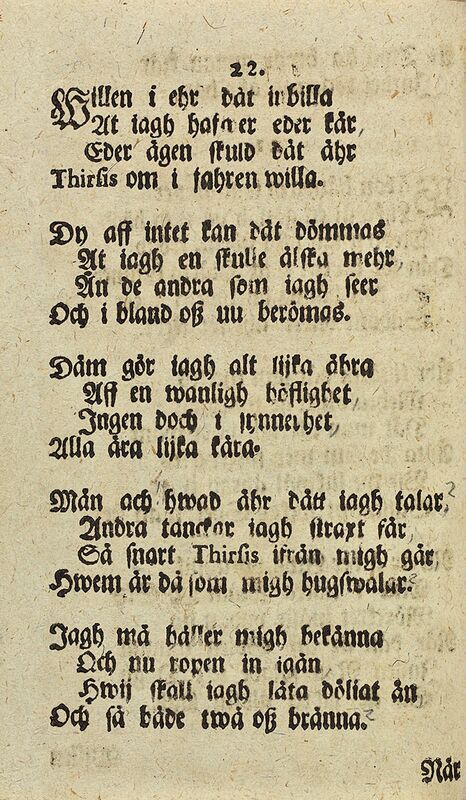 22.
Willen i ehr dät inbilla
At iagh hafwer eder kär,
Eder ägen skuld dät ähr
Thirsis om i fahren willa.
Dy aff intet kan dät dömmas
At iagh en skulle älska mehr
Än de andra som iagh seer
Och i bland oß nu berömas.
Däm gör iagh alt lijka ähra
Aff en wanligh höflighet
Ingen doch i synnerhet
Alla ära lijka kära.
Män ach hwad ähr dätt iagh talar,
Andra tanckar iagh straxt får,
Så snart Thirsis ifrån migh går,
Hwem är då som migh hugswalar.
Jagh må håller migh bekänna
Och nu ropen in igän
Hwij skall iagh låta döliat än
Och så både twå oß bränna.
När